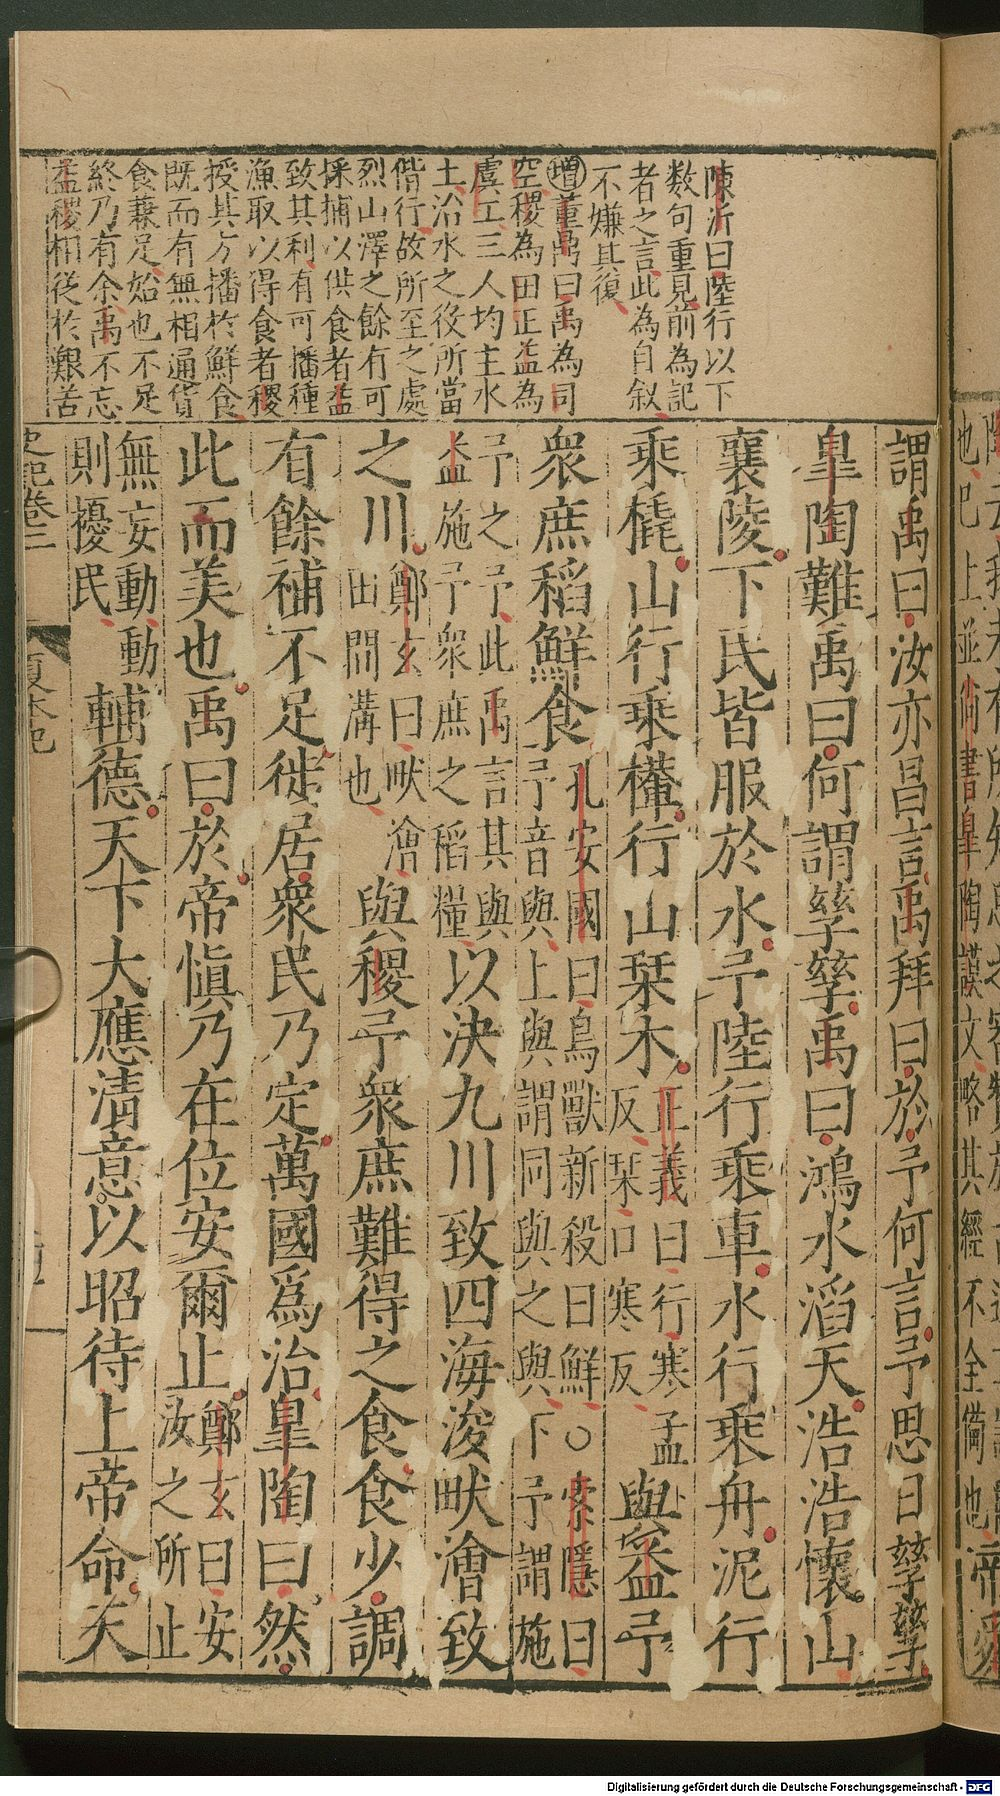 陳沂曰陸行以下
數句重見前為記
者之言此為自叙
不嫌其復
增董鼎曰禹為司
空稷為田正益為
虞工三人均主水
土治水之役所當
偕行故所至之處
烈山澤之餘有可
採捕以供食者益
致其利有可播種
漁取以得食者稷
授其方播於鮮食
既而有無相通貨
食蒹足始也不足
終乃有余禹不忘
益稷相從於艱苦
謂禹曰汝亦昌言禹拜曰於予何言予思日孳孳
皐陶難禹曰何謂孳孳禹曰鴻水滔天浩浩懷山
襄陵下民皆服於水予陸行乘車水行乘舟泥行
乘橇山行乘檋行山栞木
正義曰行寒孟
反栞口寒反
與益予
衆庶稻鮮食
孔安國曰鳥獸新殺曰鮮○索隱曰
予音與上與謂同與之與下予謂施
予之予此禹言其與
益施予衆庶之稻糧
以決九川致四海浚畎澮致
之川
鄭玄曰畎澮
田間溝也
與稷予衆庶難得之食食少調
有餘補不足徙居衆民乃定萬國為治皐陶曰然
此而美也禹曰於帝慎乃在位安爾止
鄭玄曰安
汝之所止
無妄動動
則擾民
輔德天下大應清意以昭待上帝命天
史記卷二
夏本紀
也已上並尚書皐陶謨文略其經不全備也帝
Digitalisierung gefördert durch die Deutsche Forschungsgemeinschaft - DFG